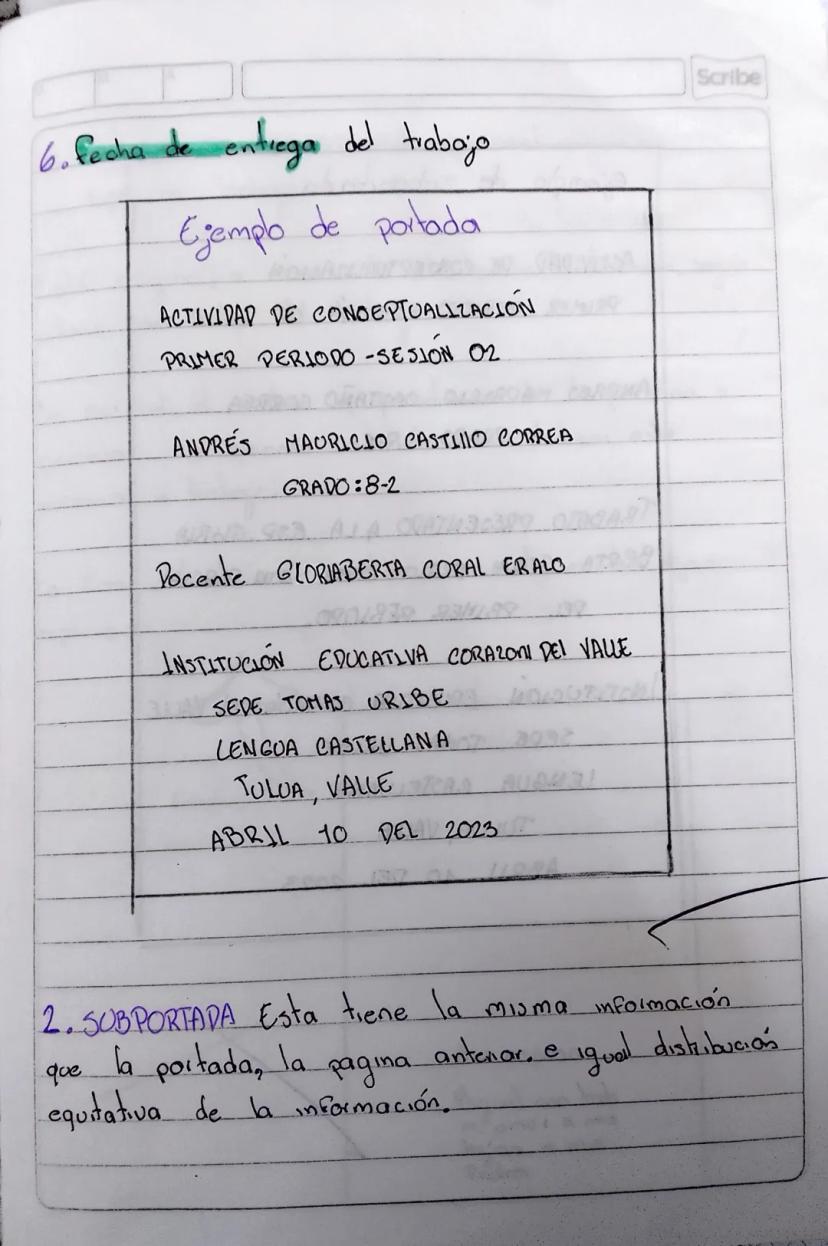 Scribe
6. Fecha de entrega del trabajo
Ejemplo de portada
ACTIVIDAD DE CONCEPTUALIZACIÓN
PRIMER PERIODO - SESIÓN 02
ANDRÉS MAURICIO CASTILLO CORREA
GRADO: 8-2
Docente GLORIABERTA CORAL ERAZO
INSTITUCIÓN EDUCATIVA CORAZON DEL VALLE
SEDE TOMAS URIBE
LENGUA CASTELLANA
TULUA, VALLE
ABRIL 10 DEL 2023
2. SUBPORTADA Esta tiene la misma información
que la portada, la pagina anterior. e igual distribución
equitativa de la información.